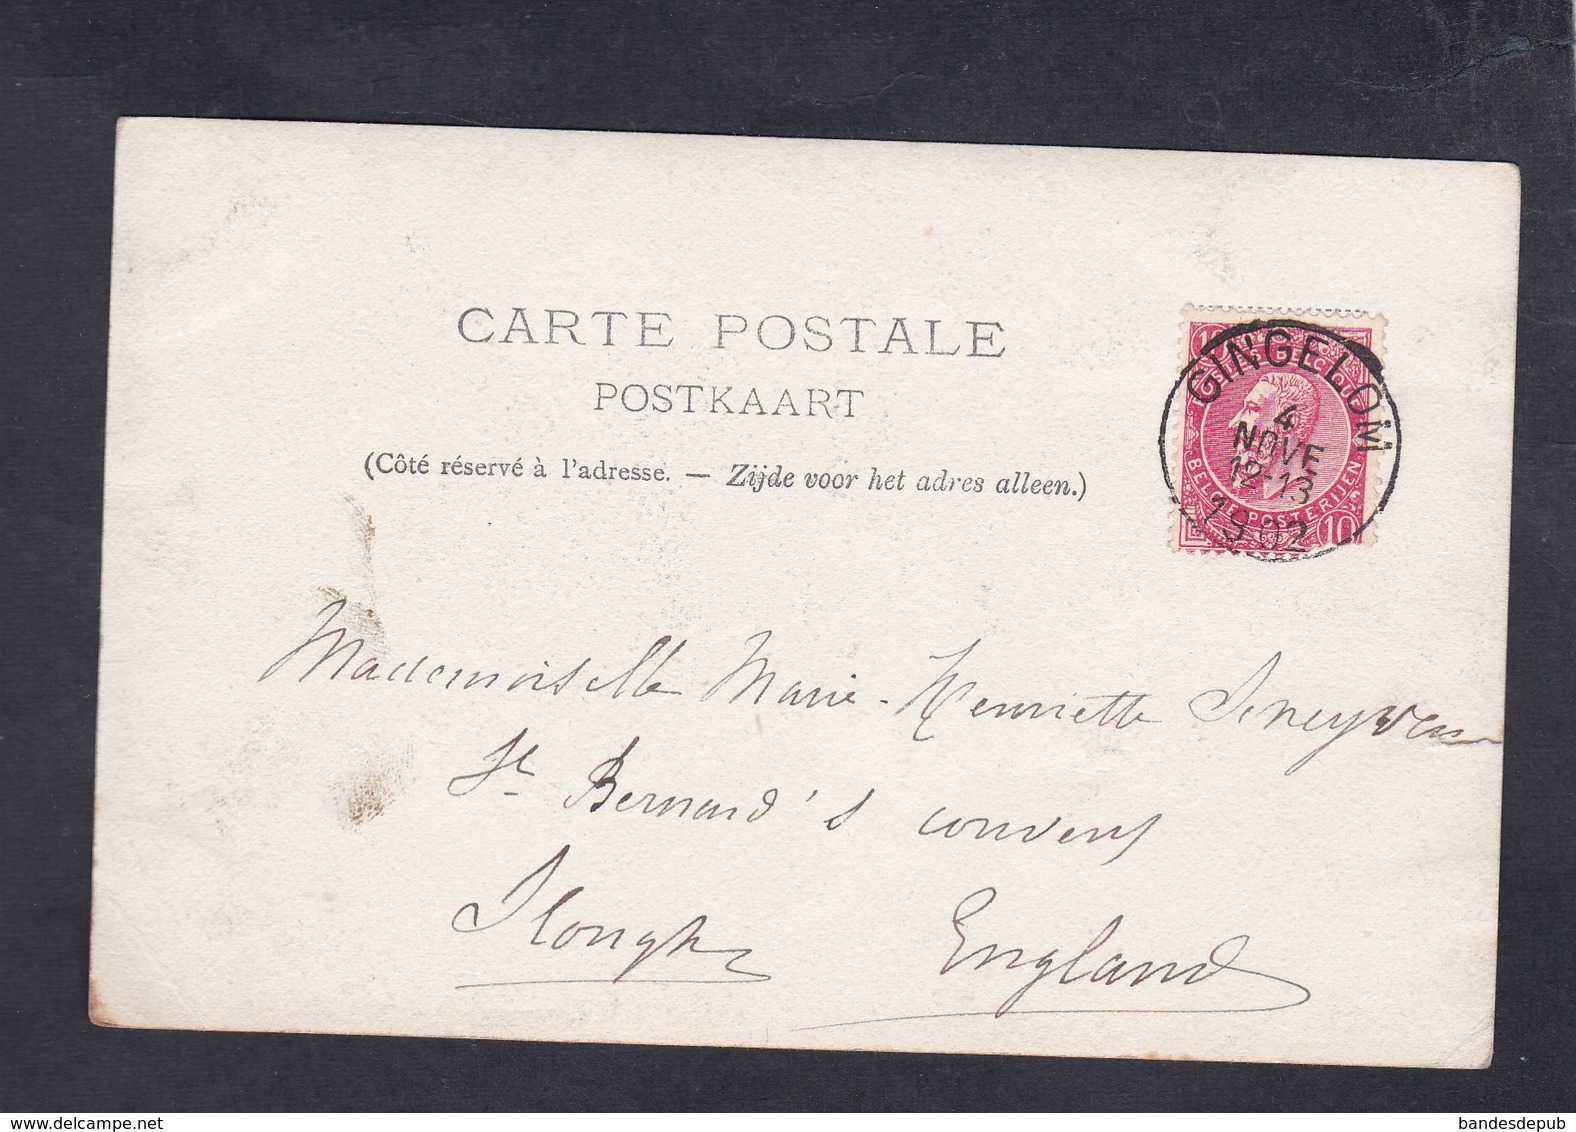 CARTE POSTALE
POSTKAART
(Côté réservé à l'adresse. — Zijde voor het adres alleen.)
GINGELOM
4
NOVE
12-13
1902
10
BELG POSTERIJEN
10
Mademoiselle Marie-Henriette
St Bernard's convent
Slough England
bandesdepub